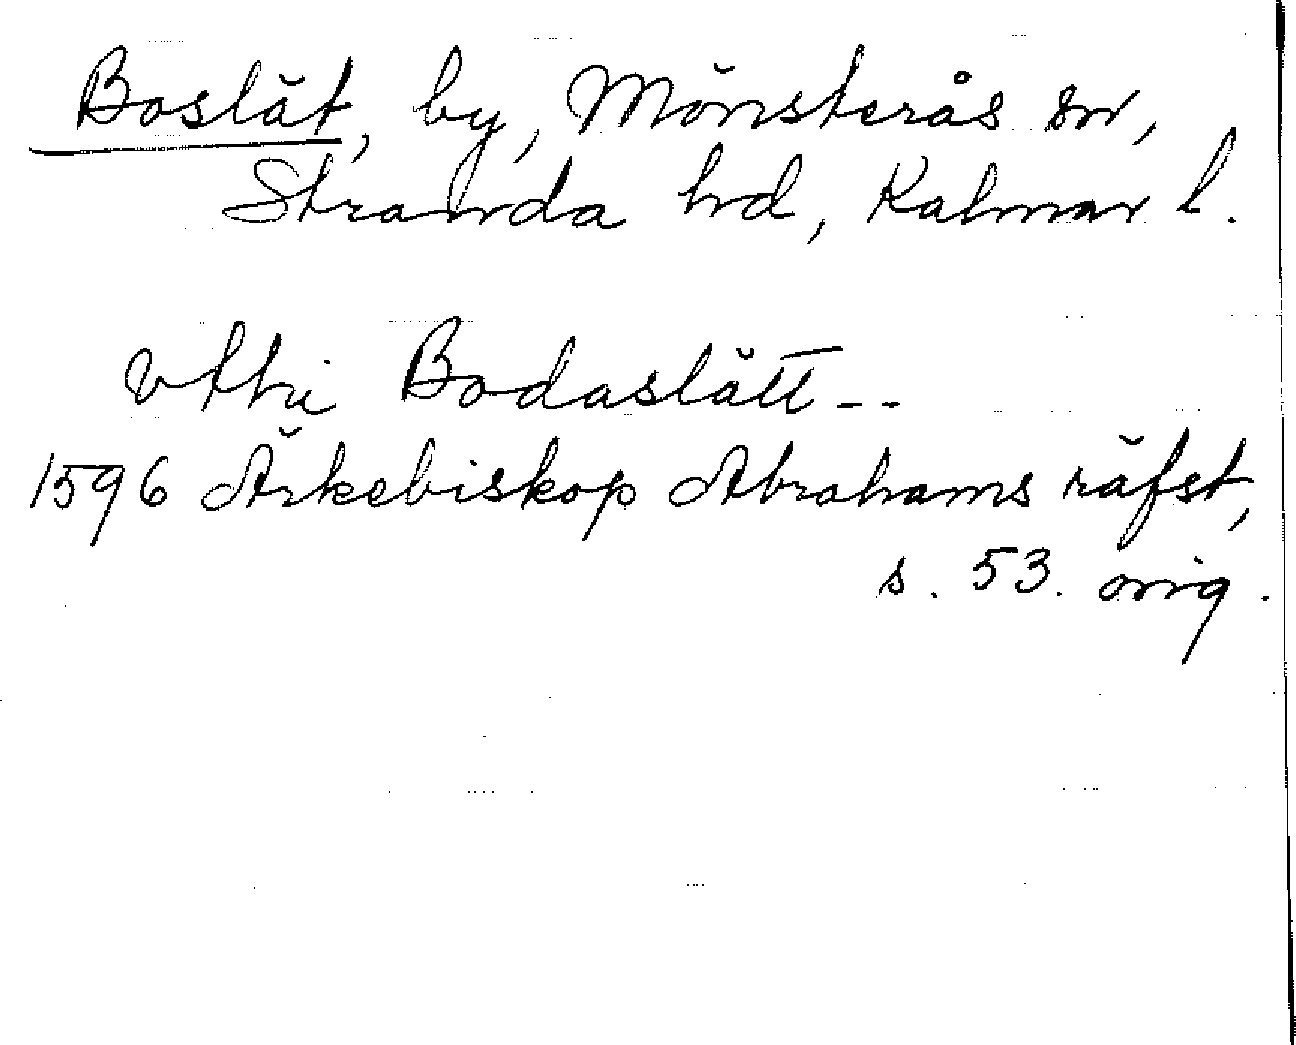 Boslät, by, Mönsterås sn,
Stranda hd, Kalmar l.
vthi Bodaslätt--
1596 Ärkebiskop Abrahams räfst,
s. 53. orig.